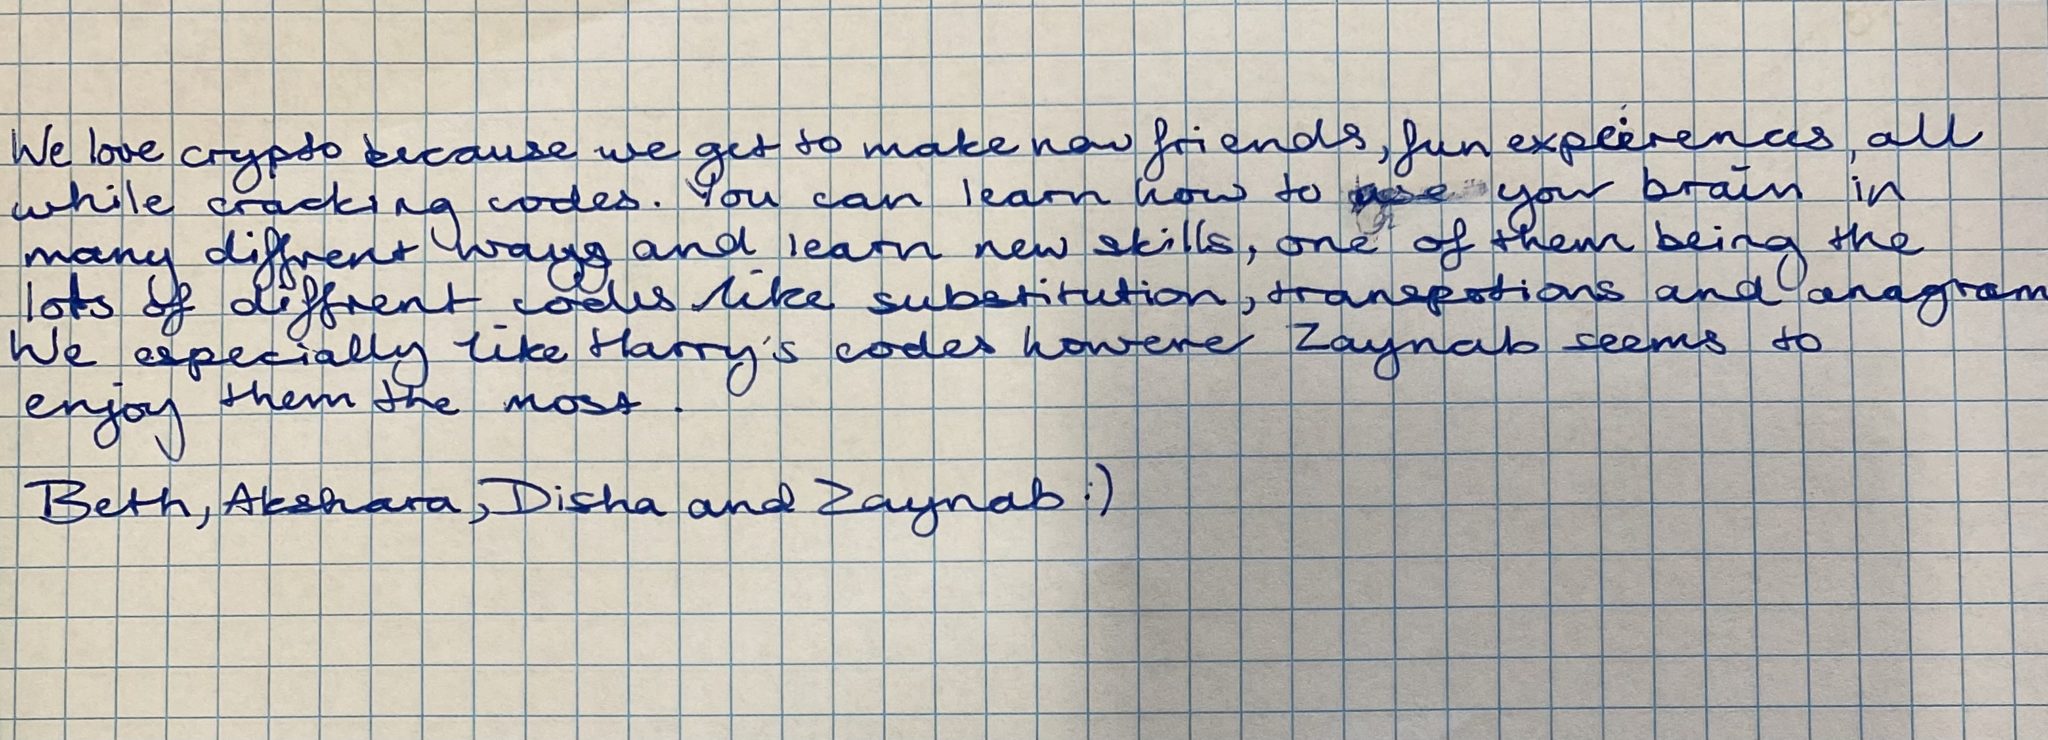 We love crypto because we get to make new friends, fun expeirences, all
while cracking codes. You can learn how to use your brain in
many diffrent ways and learn new skills, one of them being the
lots of diffrent codes like substitution, transpotions and anagram
We especially like Harry's codes howere Zaynab seems to
enjoy them the most.
Beth, Akshara, Disha and Zaynab :)